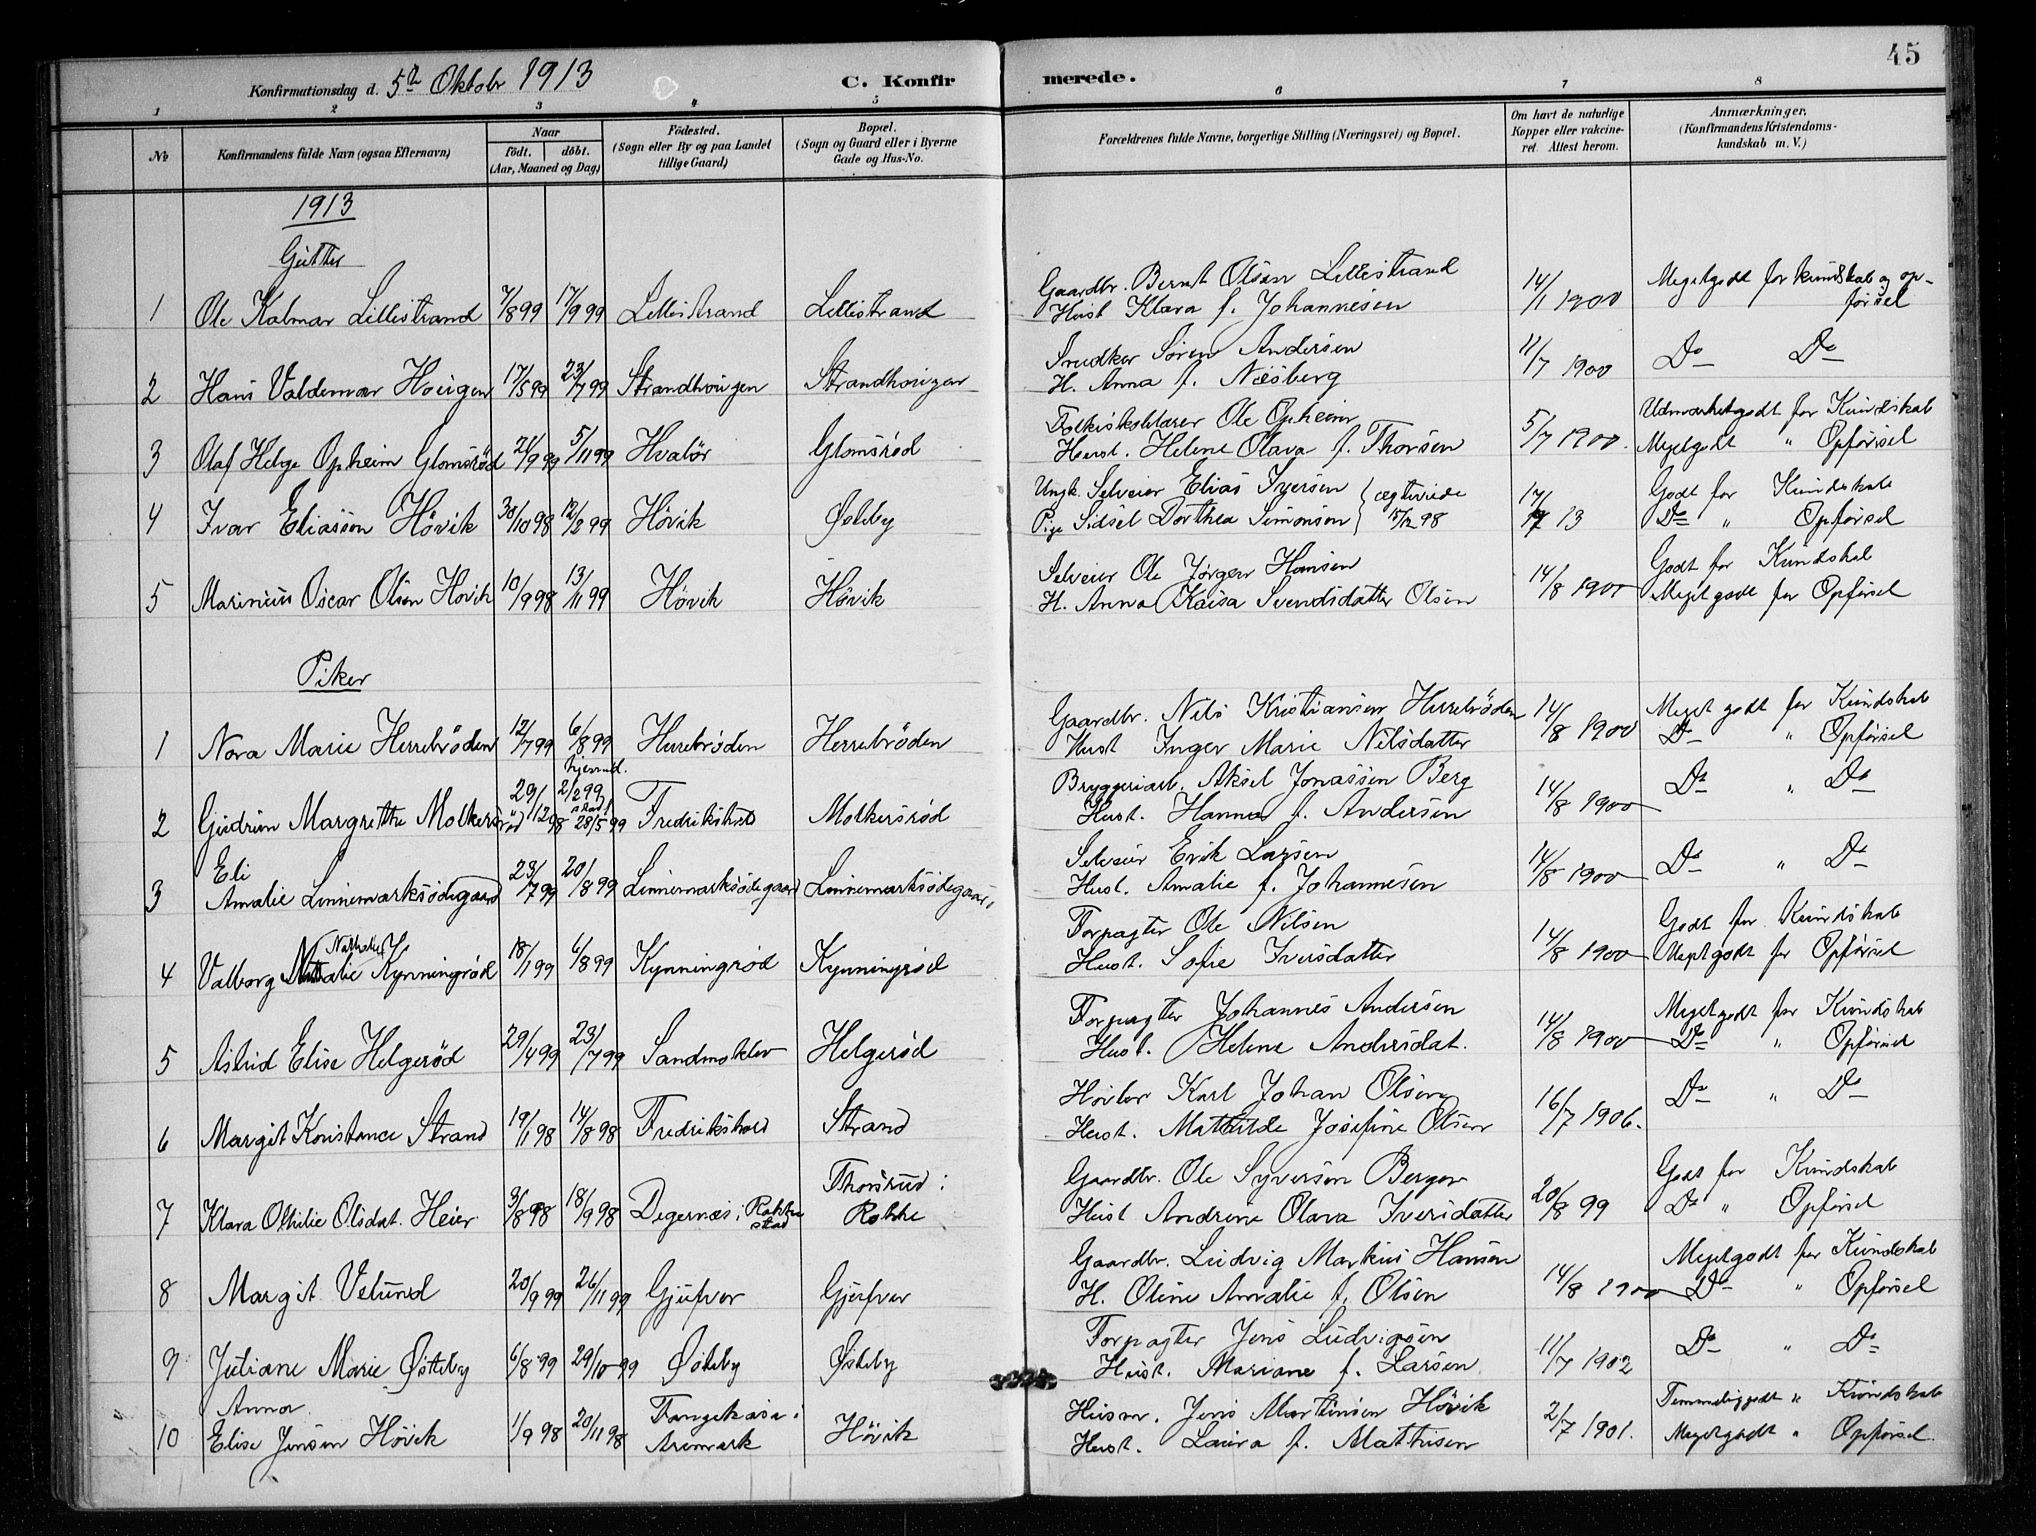 45
Konfirmationsdag d. 5te Oktobr 1913
C. Konfirmerede.
1 2 3 4 5 6 7 8
No
Konfirmandens fulde Navn (ogsaa Efternavn)
Naar
født. døbt.
(Aar, Maaned og Dag)
Födested.
(Sogn eller By og paa Landet
tillige Gaard)
Bopæl.
(Sogn og Gaard eller i Byerne
Gade og Hus-No.
Forældrenes fulde Navne, borgerlige Stilling (Næringsvei) og Bopæl.
Om havt de naturlige
Kopper eller vakcine-
ret. Attest herom.
Anmærkninger.
(Konfirmandens Kristendoms-
kundskab m. V.)
1913
Gutter
Gaardbr. Bernt Olsen Lillestrand 14/ Megetgodt for kundskab og op-
1 Ole Kalmar Lillestrand 7/8 99 17/9 99 Lillestrand Lillestrand Hust Klara f. Johannesen 1 1900 førsel
Snedker Søren Andersen 11/
2 Hans Valdemar Hougen 17/5 99 23/7 99 Strandhougen Strandhougen H. Anna f. Næsberg 7 1900 Do Do
Folkeskolelærer Ole Opheim Udmærketgodt for Kundskab
3 Olaf Helge Opheim Glomsrød 24/9 99 5/11 99 Hvalør Glomsrød Hust. Helene Olava f. Thorsen 5/7 1900. Megetgodt " Opførsel
Ungk. Selveier Elias Iversen } ægteviede 17/ Godt for Kundskab
4 Ivar Eliassen Høvik 30/10 98 12/2 99 Høvik Østeby Pige Sidsel Dorthea Simonsen } 15/12 98 13 Do " Opførsel
Selveier Ole Jørgen Hansen Godt for Kundskab
5 Marinius Oscar Olsen Høvik 10/9 98 13/11 99 Høvik Høvik H. Anna Kaisa Svendsdatter Olsen 14/8 1900 Megetgodt for Opførsel
Piker
Gaardbr. Nils Kristiansen Herrebrøden 14/ Meget godt for Kundskab
1 Nora Marie Herrebrøden 12/7 99 6/8 99 Herrebrøden Herrebrøden Hust Inger Marie Nilsdatter 8 1900 Do " Opførsel
hjemmed.
29/ 2/2 99 Bryggeriarb. Aksel Jonassen Berg
2 Gudrun Margrethe Molkersrød 12 98 28/5 99 Fredrikshald Molkersrød Hust. Hanna f. Andersen 14/8 1900 Do " Do
Eli Selveier Erik Larsen
3 Amalie Linnemarksødegaard 23/7 99 20/8 99 Linnemarksødegaard Linnemarksødegaard Hust. Amalie f. Johannesen 14/8 1900 Do " Do
Nathalie Forpagter Ole Nilsen Godt for Kundskab
4 Valborg Kynningrød 18/1 99 6/8 99 Kynningrød Kynningrød Hust. Sofie Iversdatter 14/8 1900 Megetgodt for Opførsel
Forpagter Johannes Andersen Megetgodt for Kundskab
5 Astrid Elise Helgerød 29/4 99 23/7 99 Sandmoklev Helgerød Hust. Helene Andersdat. 14/8 1900 Do " Opførsel
Høvler Karl Johan Olsen
6 Margit Konstance Strand 19/1 98 14/8 98 Fredrikshald Strand Hust. Mathilde Josefine Olsen 16/7 1906. Do " Do
Thorsrud i Gaardbr. Ole Syversen Berger Godt for Kundskab
7 Klara Othilie Olsdat. Heier 3/8 98 18/9 98 Degernæs i Rakkestad Rokke Hust Andrine Olava Iversdatter 20/8 99 Do " Opførsel
Gaardbr. Ludvig Markus Hansen Megetgodt for Kundskab
8 Margit Velund 20/9 99 26/11 99 Gjølver Gjølver H. Oline Amalie f. Olsen 14/8 1900 Do " Opførsel
Forpagter Jens Ludvigsen
9 Juliane Marie Østeby 6/8 99 29/10 99 Østeby Østeby Hust. Mariane f. Larsen 11/7 1902 Do " Do
Anna Husm. Jens Martinsen Høvik Temmeliggodt " Kundskab
10 Elise Jensen Høvik 1/9 98 20/11 98 Fangekasa i Aremark Høvik Hust. Laura f. Mathisen 2/7 1901. Megetgodt " Opførsel.